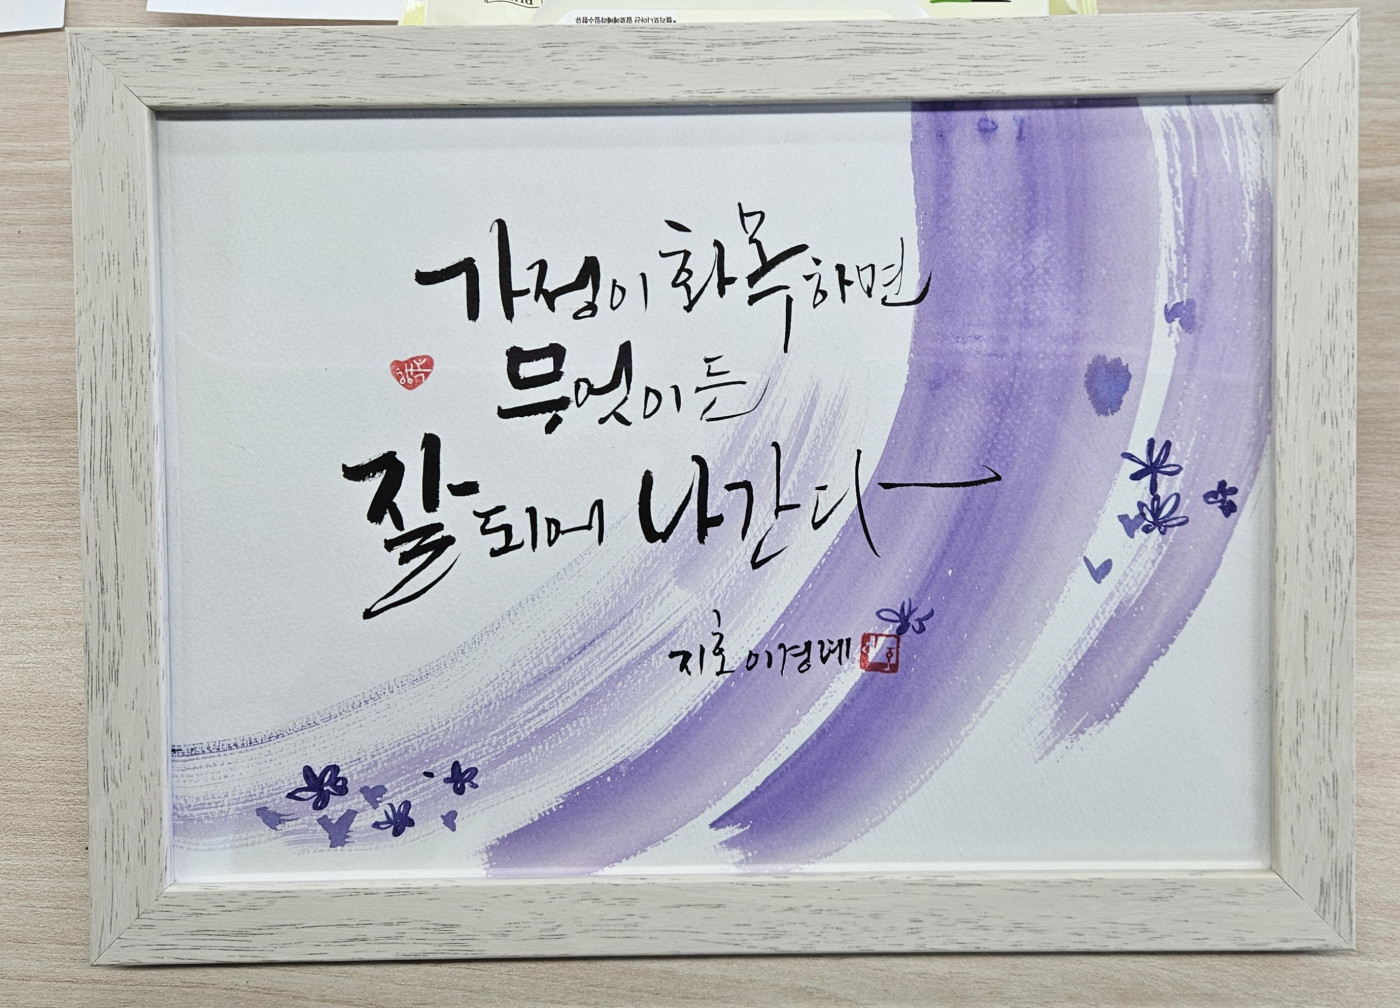 가정이 화목하면
무엇이든
행복
잘 되에 나간다
지호 이경례